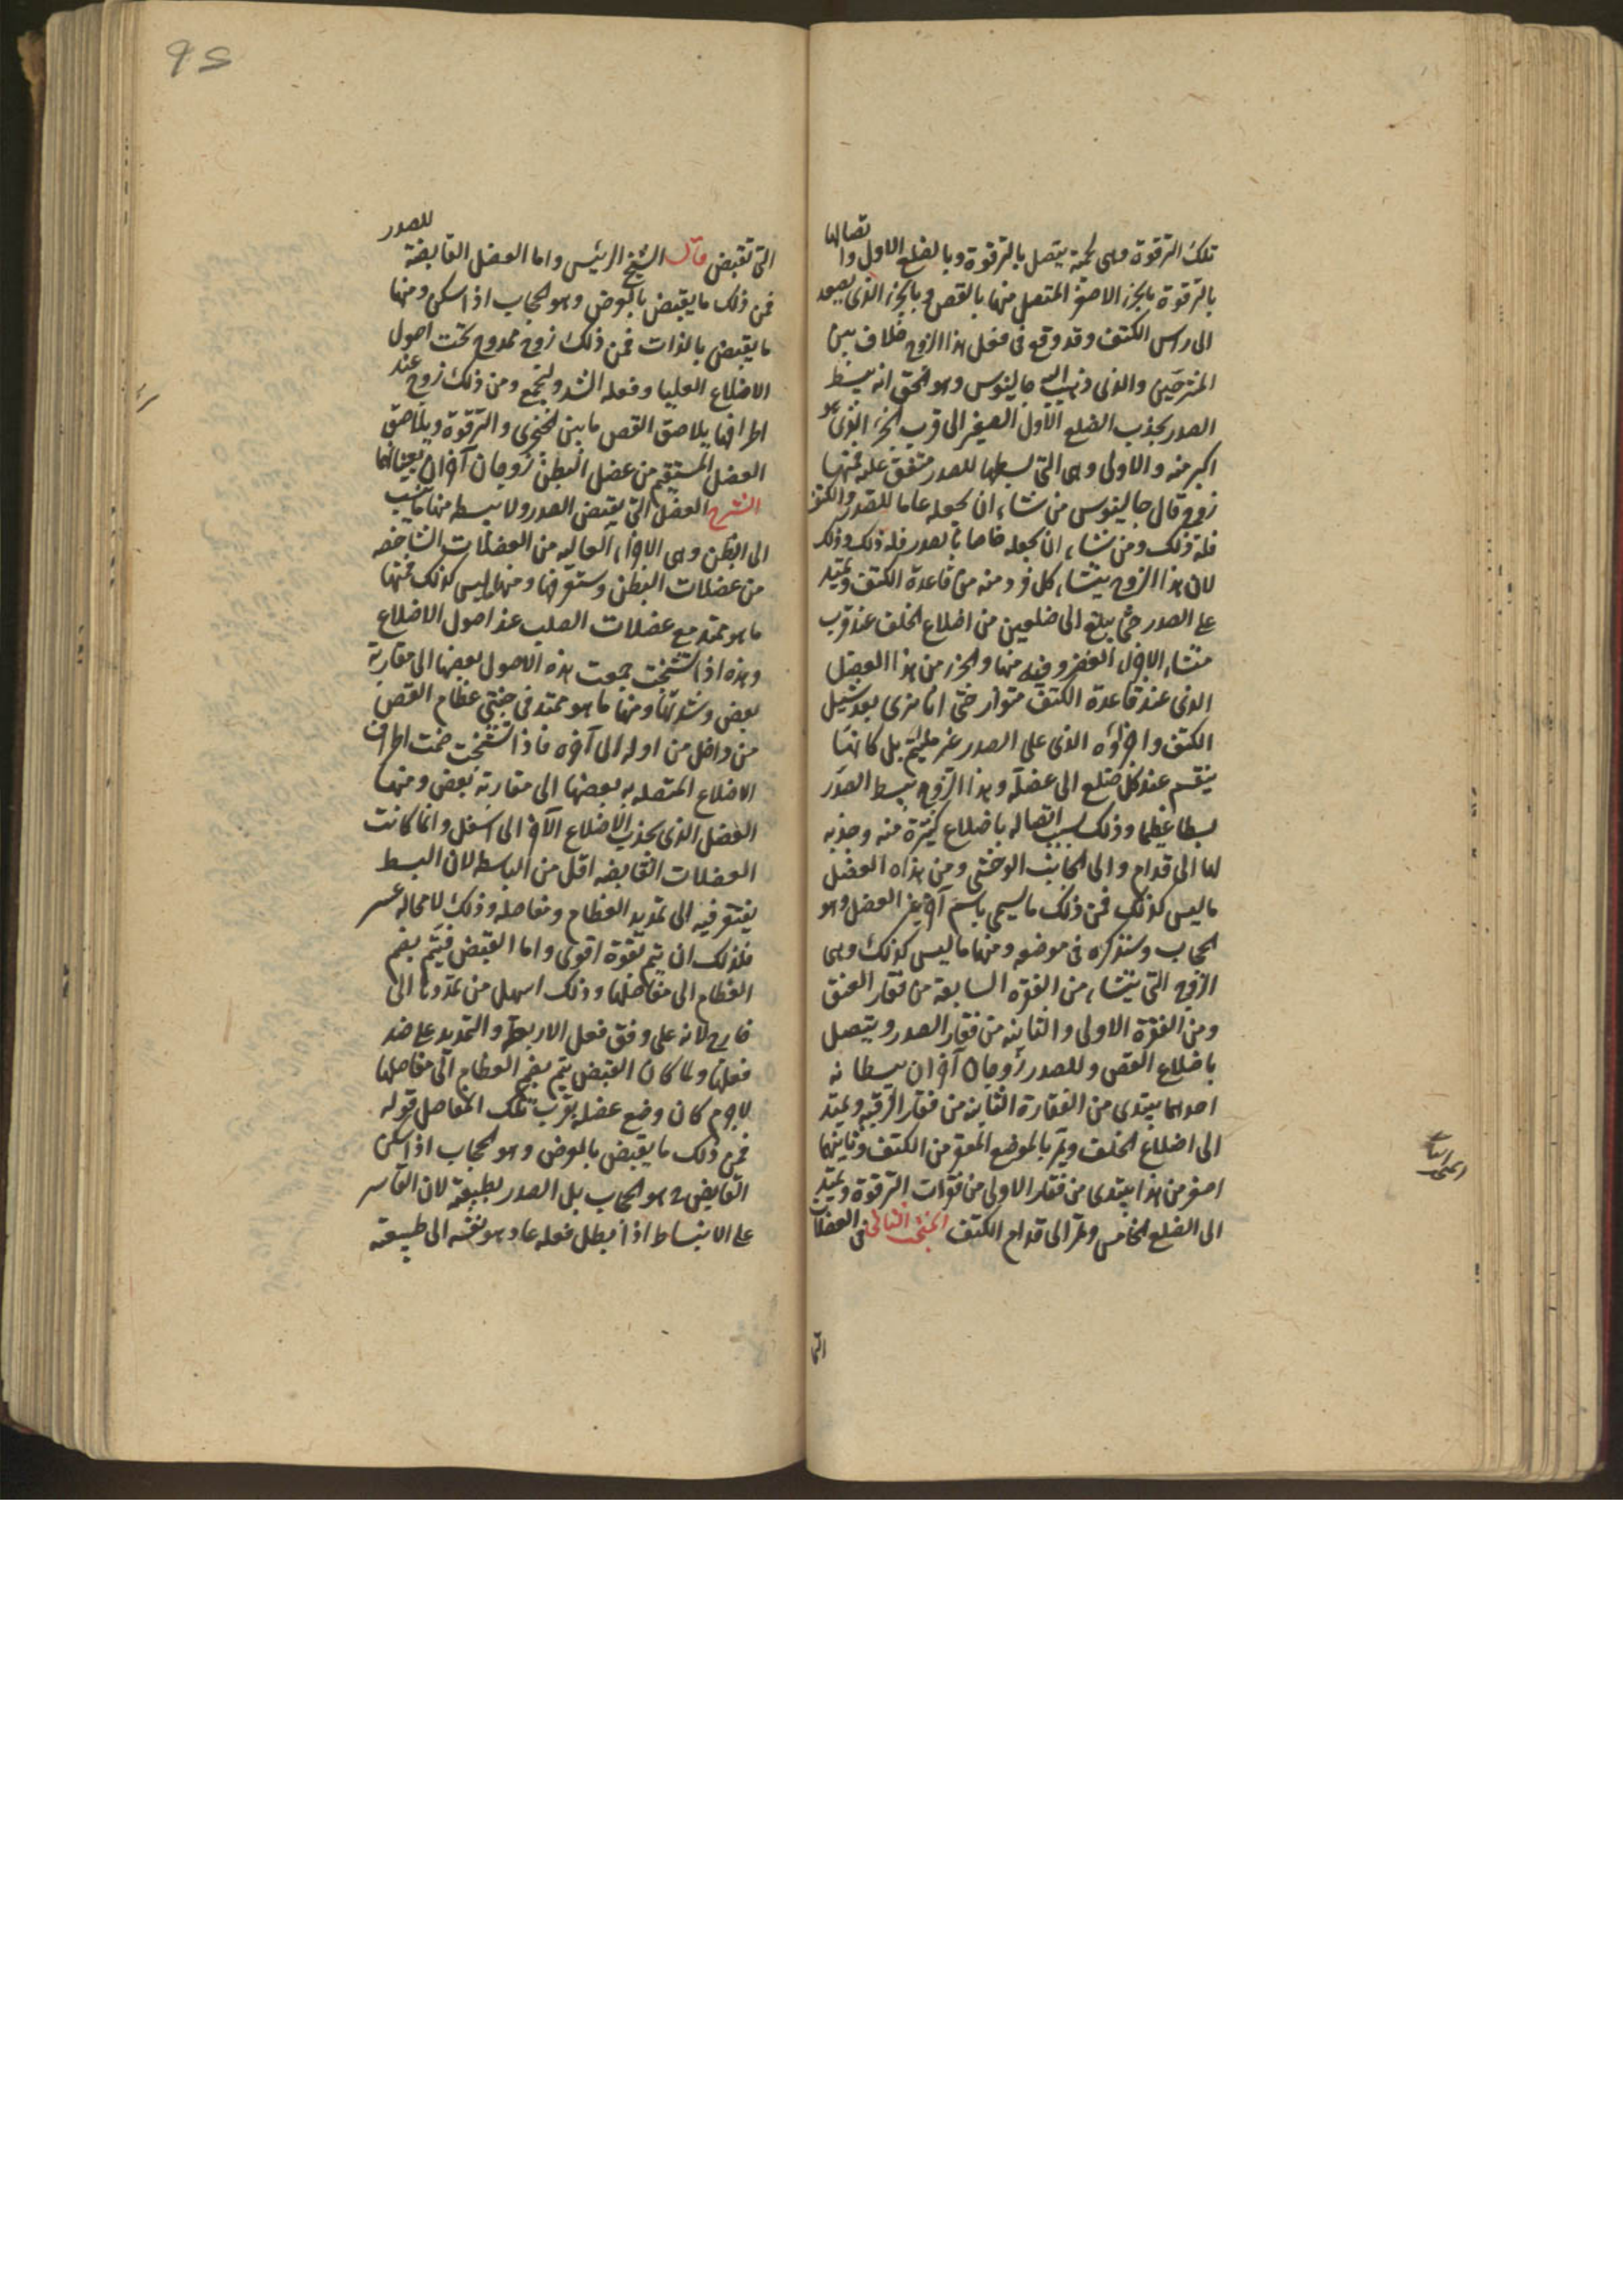 تلك الترقوة وهى لحمة يتصل بالترقوة وبالضلع الاول واتصالها
بالترقوة بالجزء الاصغر المتصل منها بالقص وبالجزء الذى يصعد
الى راس الكتف وقد وقع فى فعل هذا الزوج خلاف بين
المشرحين والذى ذهب اليه جالينوس وهو الحق انه يبسط
الصدر بجذب الضلع الاول الصغير الى قرب الجزء الذى هو
اكبر منه والاولى وهى التى بسطها للصدر متفق عليه فمنها
زوج قال جالينوس من شاء ان يجعله عاما للصدر والكتف
فله ذلك ومن شاء ان يجعله خاصا بالصدر فله ذلك وذلك
لان هذا الزوج ينشاء كل فرد منه من قاعدة الكتف ويمتد
على الصدر حتى يبلغ الى ضلعين من اضلاع الخلف عند قرب
منشاء الاجزاء الغضروفيه منها والجزء من هذا العضل
الذى عند قاعدة الكتف متوار حتى انما يرى بعد شيل
الكتف واجزاؤه الذى على الصدر غير ملتئم بل كانها
ينقسم عند كل ضلع الى عضلة وهذا الزوج يبسط الصدر
بسطا عظيما وذلك بسبب اتصاله باضلاع كثيرة منه وجذبه
لها الى قدام والى الجانب الوحشى ومن هذه العضل
ما ليس كذلك فمن ذلك ما يسمى باسم آخر غير العضل وهو
الحجاب وسنذكره فى موضعه ومنها ما ليس كذلك وهى
الزوج التى ينشاء من الفقرة السابعة من فقار العنق
ومن الفقرة الاولى والثانيه من فقار الصدر ويتصل
باضلاع القص وللصدر زوجان آخران يبسطانه
احدهما يبتدى من الفقارة الثانيه من فقار الرقبه ويمتد
الى اضلاع الخلف ويمر بالموضع المقعر من الكتف وثانيهما
اصغر من هذا يبتدى من فقار الاولى من فقرات الترقوة ويمتد
الى الضلع الخامس ويمر الى قدام الكتف المبحث الثانى فى العضلات
المبحث الثانى
التى
التى تقبض قال الشيخ الرئيس واما العضل القابضة للصدر
فمن ذلك ما يقبض بالعرض وهو الحجاب اذا سكن ومنها
ما يقبض بالذات فمن ذلك زوج ممدوح تحت اصول
الاضلاع العليا وفعله الشد ولتجمع ومن ذلك زوج عند
اطرافها يلاصق القص ما بين الخنجرى والترقوة ويلاصق
العضل المستقيم من عضل البطن زوجان آخران يعينانها
الشرح العضل التى يقبض الصدر ولا يبسطه منها ما ينسب
الى البطن وهى الاجزاء العاليه من العضلات الشاخصه
من عضلات البطن وستعرفها ومنها ما ليس كذلك فمنها
ما هو ممتد مع عضلات الصلب عند اصول الاضلاع
وهذه اذا تشنجت جمعت هذه الاصول بعضها الى مقاربة
بعض وشدتها ومنها ما هو ممتد فى جنبتى عظام القص
من داخل من اوله الى آخره فاذا تشنجت ضمت اطراف
الاضلاع المتصله به بعضها الى مقاربة بعض ومنها
العضل الذى يجذب الاضلاع الآخر الى اسفل وانما كانت
العضلات القابضه اقل من الباسطه لان البسط
يفتقر فيه الى تمديد العظام ومفاصله وذلك لا محاله عسر
فلذلك ان يتم بقوة اقوى واما القبض فيتم بضم
العظام الى مفاصلها وذلك اسهل من تمددها الى
خارج لانه على وفق فعل الاربطة والتمديد على ضد
فعلها ولما كان القبض يتم بضم العظام الى مفاصلها
لاجرم كان وضع عضله بقرب تلك المفاصل قوله
فمن ذلك ما يقبض بالعرض وهو الحجاب اذا سكن
القابض لا هو الحجاب بل الصدر بطبيعته لان القاسر
على الانبساط اذا بطل فعله عاد هو بنفسه الى طبيعته